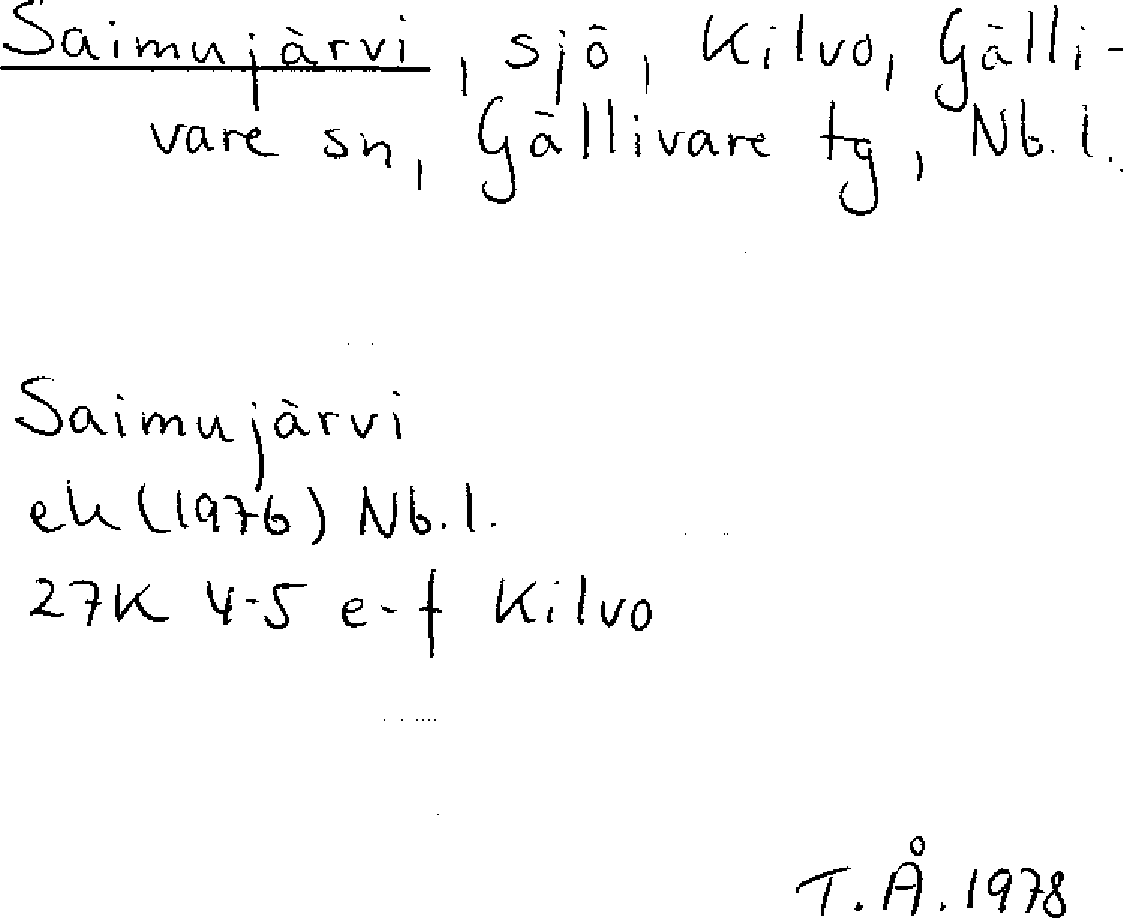 Saimujärvi, sjö, Kilvo, Gälli-
vare sn, Gällivare tg, Nb. l.
Saimujärvi
ek (1976) Nb. l.
27K 4-5 e-f Kilvo
T. Å. 1978